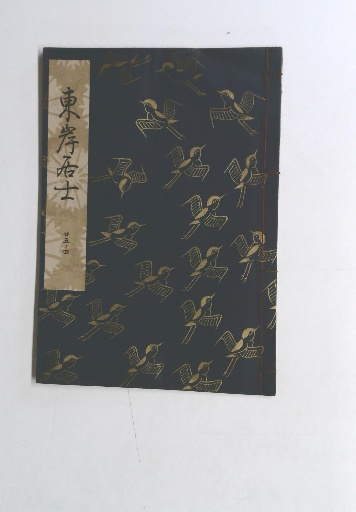 東岸居士
廿五ノ四